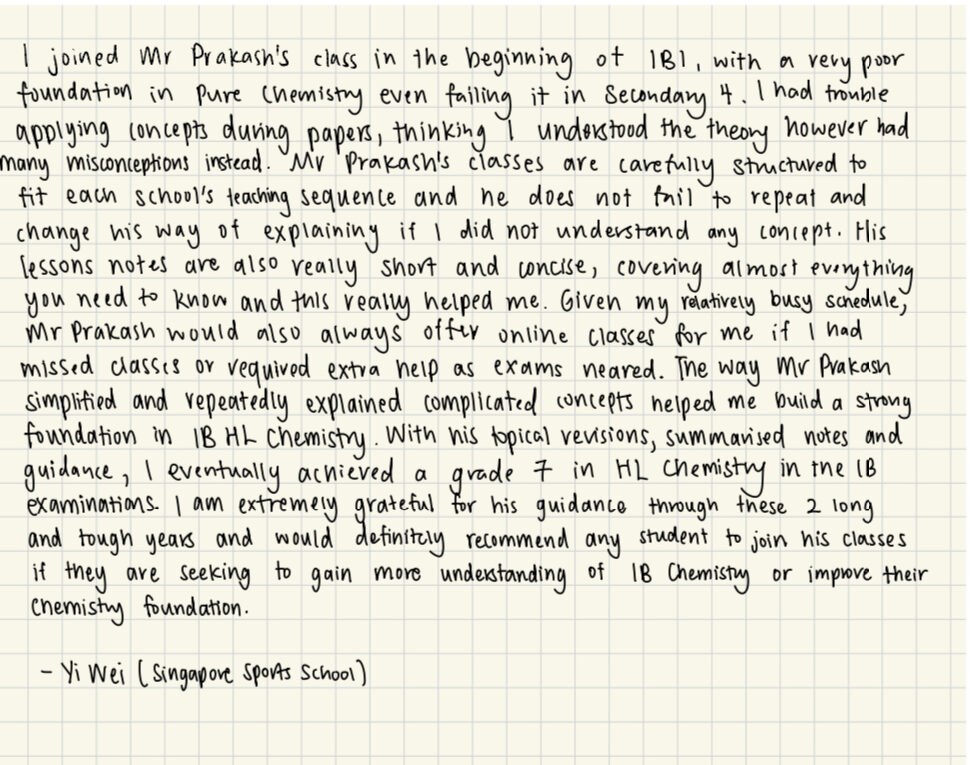 I joined Mr Prakash's class in the beginning of IB1, with a very poor
foundation in Pure Chemistry even failing it in Secondary 4. I had trouble
applying concepts during papers, thinking I understood the theory however had
many misconceptions instead. Mr Prakash's classes are carefully structured to
fit each school's teaching sequence and he does not fail to repeat and
change his way of explaining if I did not understand any concept. His
lessons notes are also really short and concise, covering almost everything
you need to know and this really helped me. Given my relatively busy schedule,
Mr Prakash would also always offer online classes for me if I had
missed classes or required extra help as exams neared. The way Mr Prakash
simplified and repeatedly explained complicated concepts helped me build a strong
foundation in IB HL Chemistry. With his topical revisions, summarised notes and
guidance, I eventually achieved a grade 7 in HL Chemistry in the IB
examinations. I am extremely grateful for his guidance through these 2 long
and tough years and would definitely recommend any student to join his classes
if they are seeking to gain more understanding of IB Chemistry or improve their
Chemistry foundation.
- Yi Wei (Singapore Sports School)